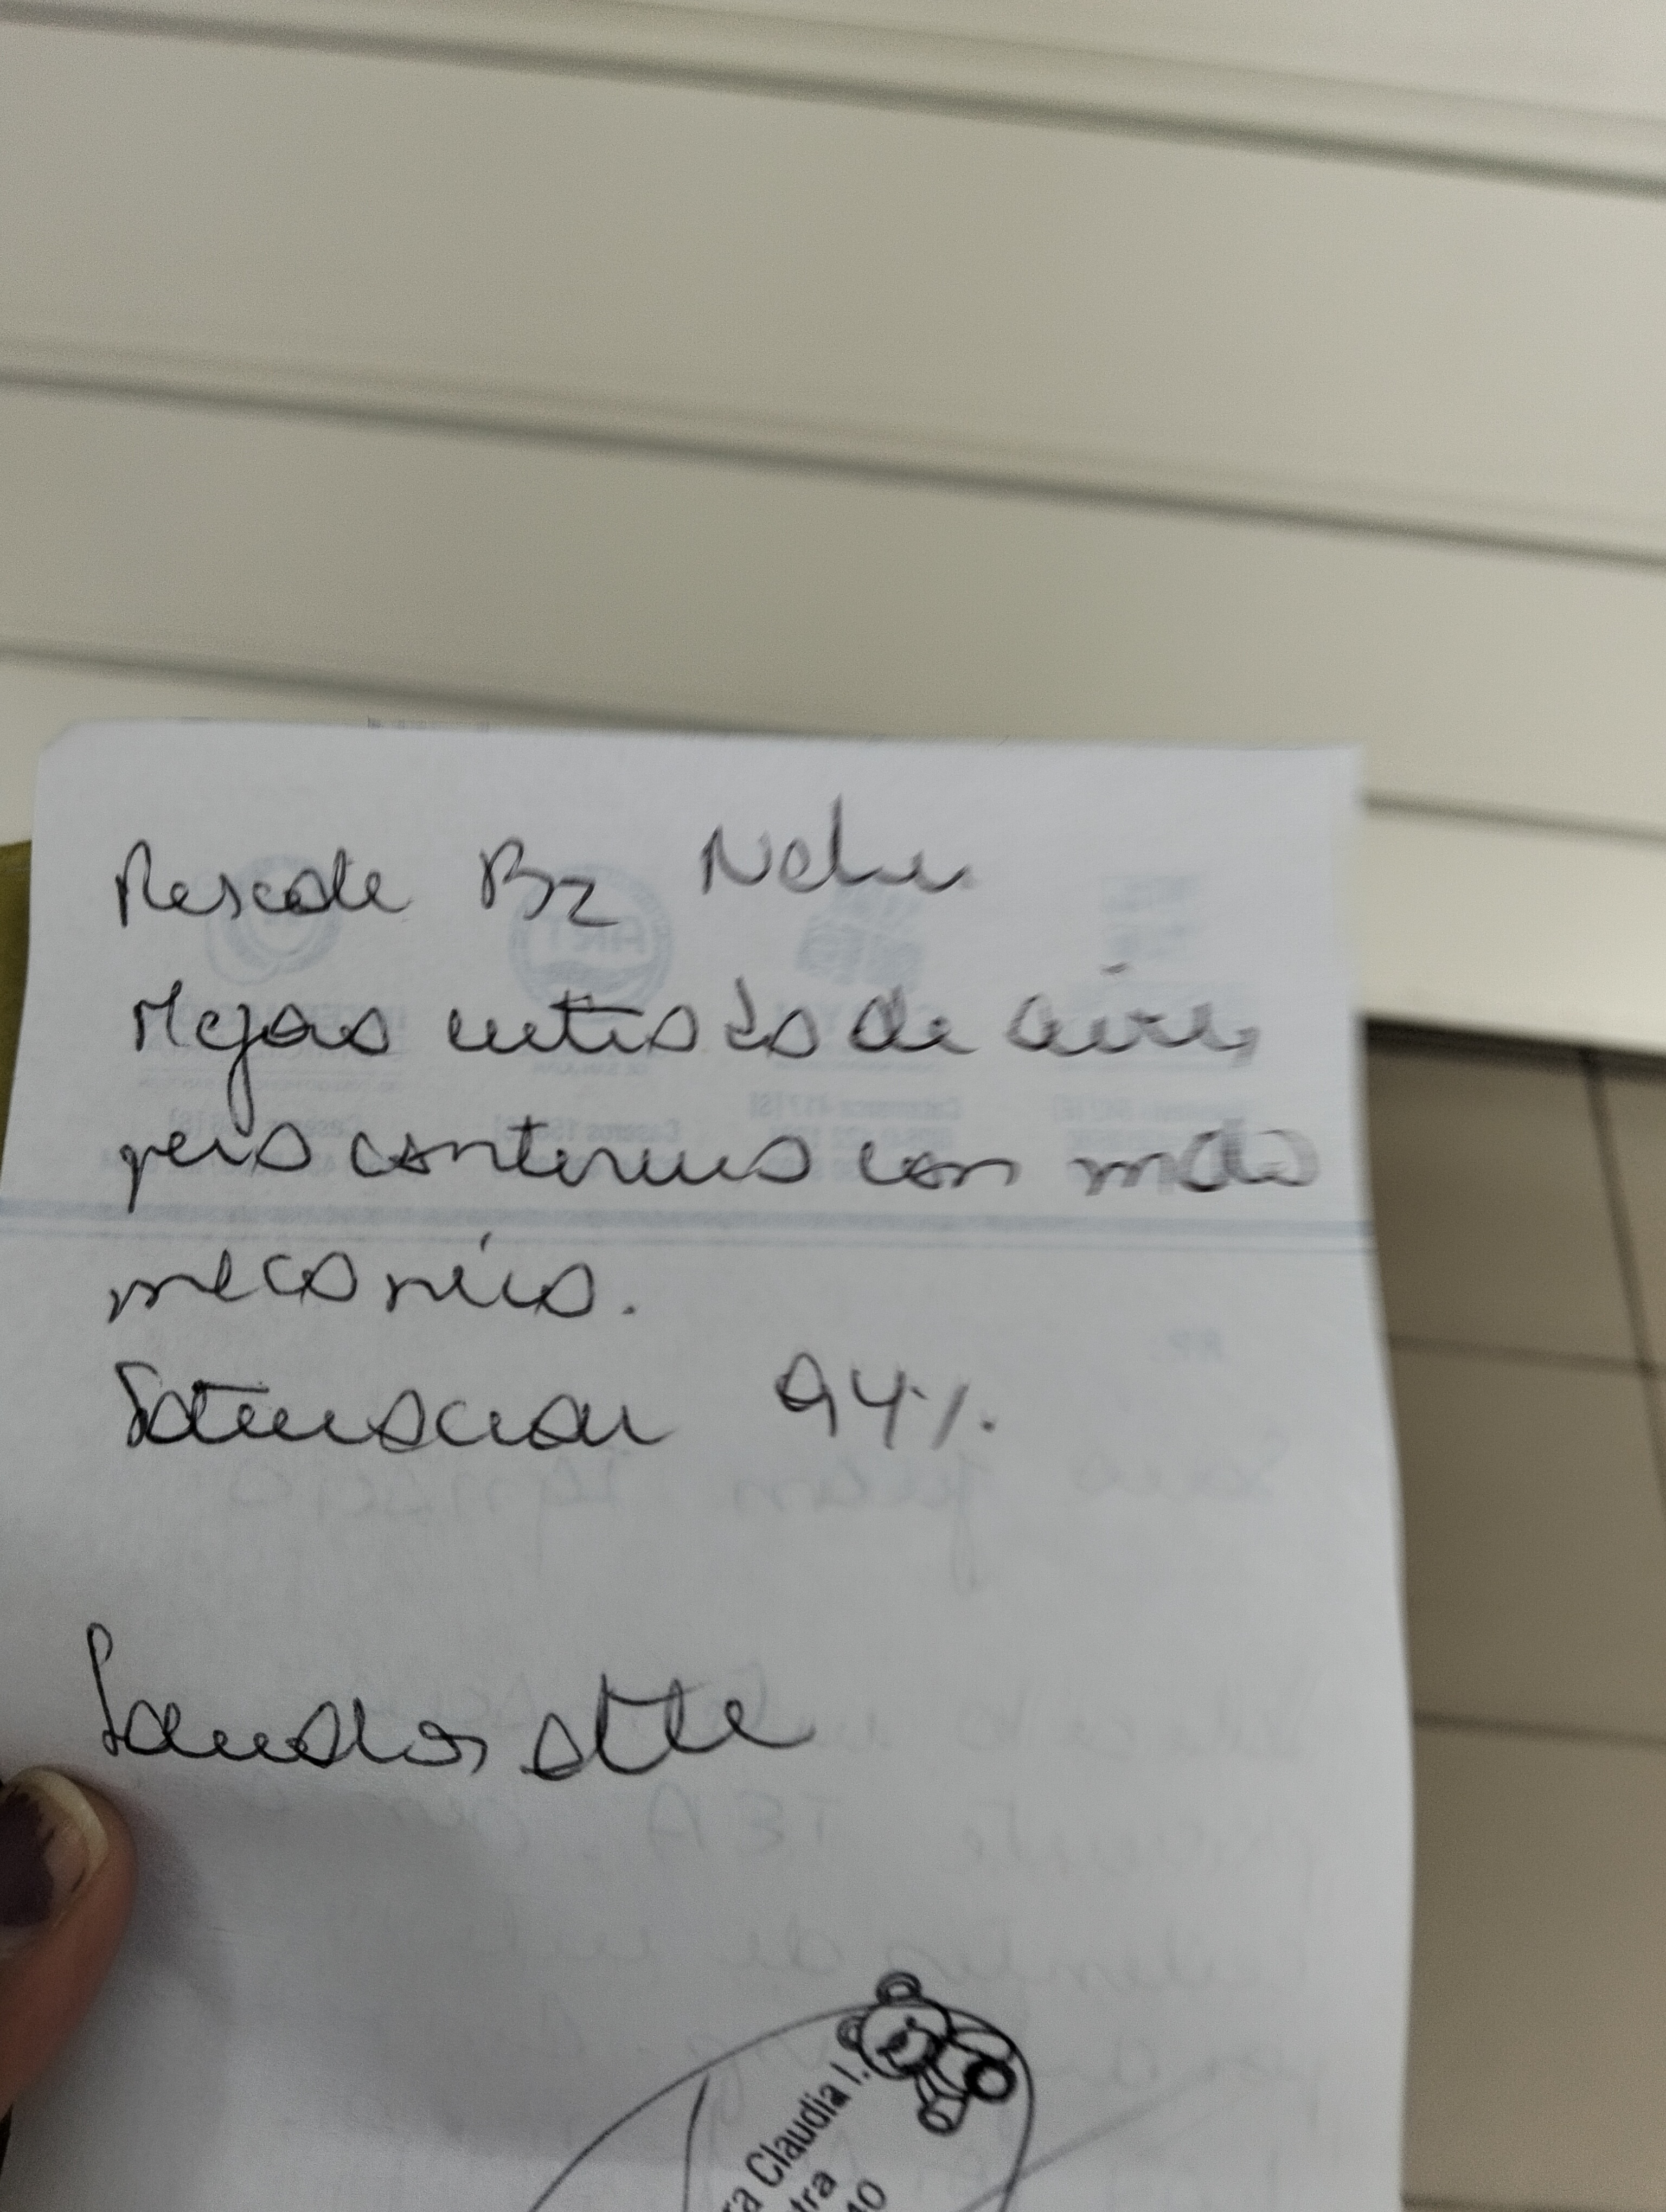 Rescate B2 Nebu
Mejora entrada de aire,
pero continua con mala
mecánica.
Saturación 94%.
Saludos atte
ra Claudia I.
tra
40